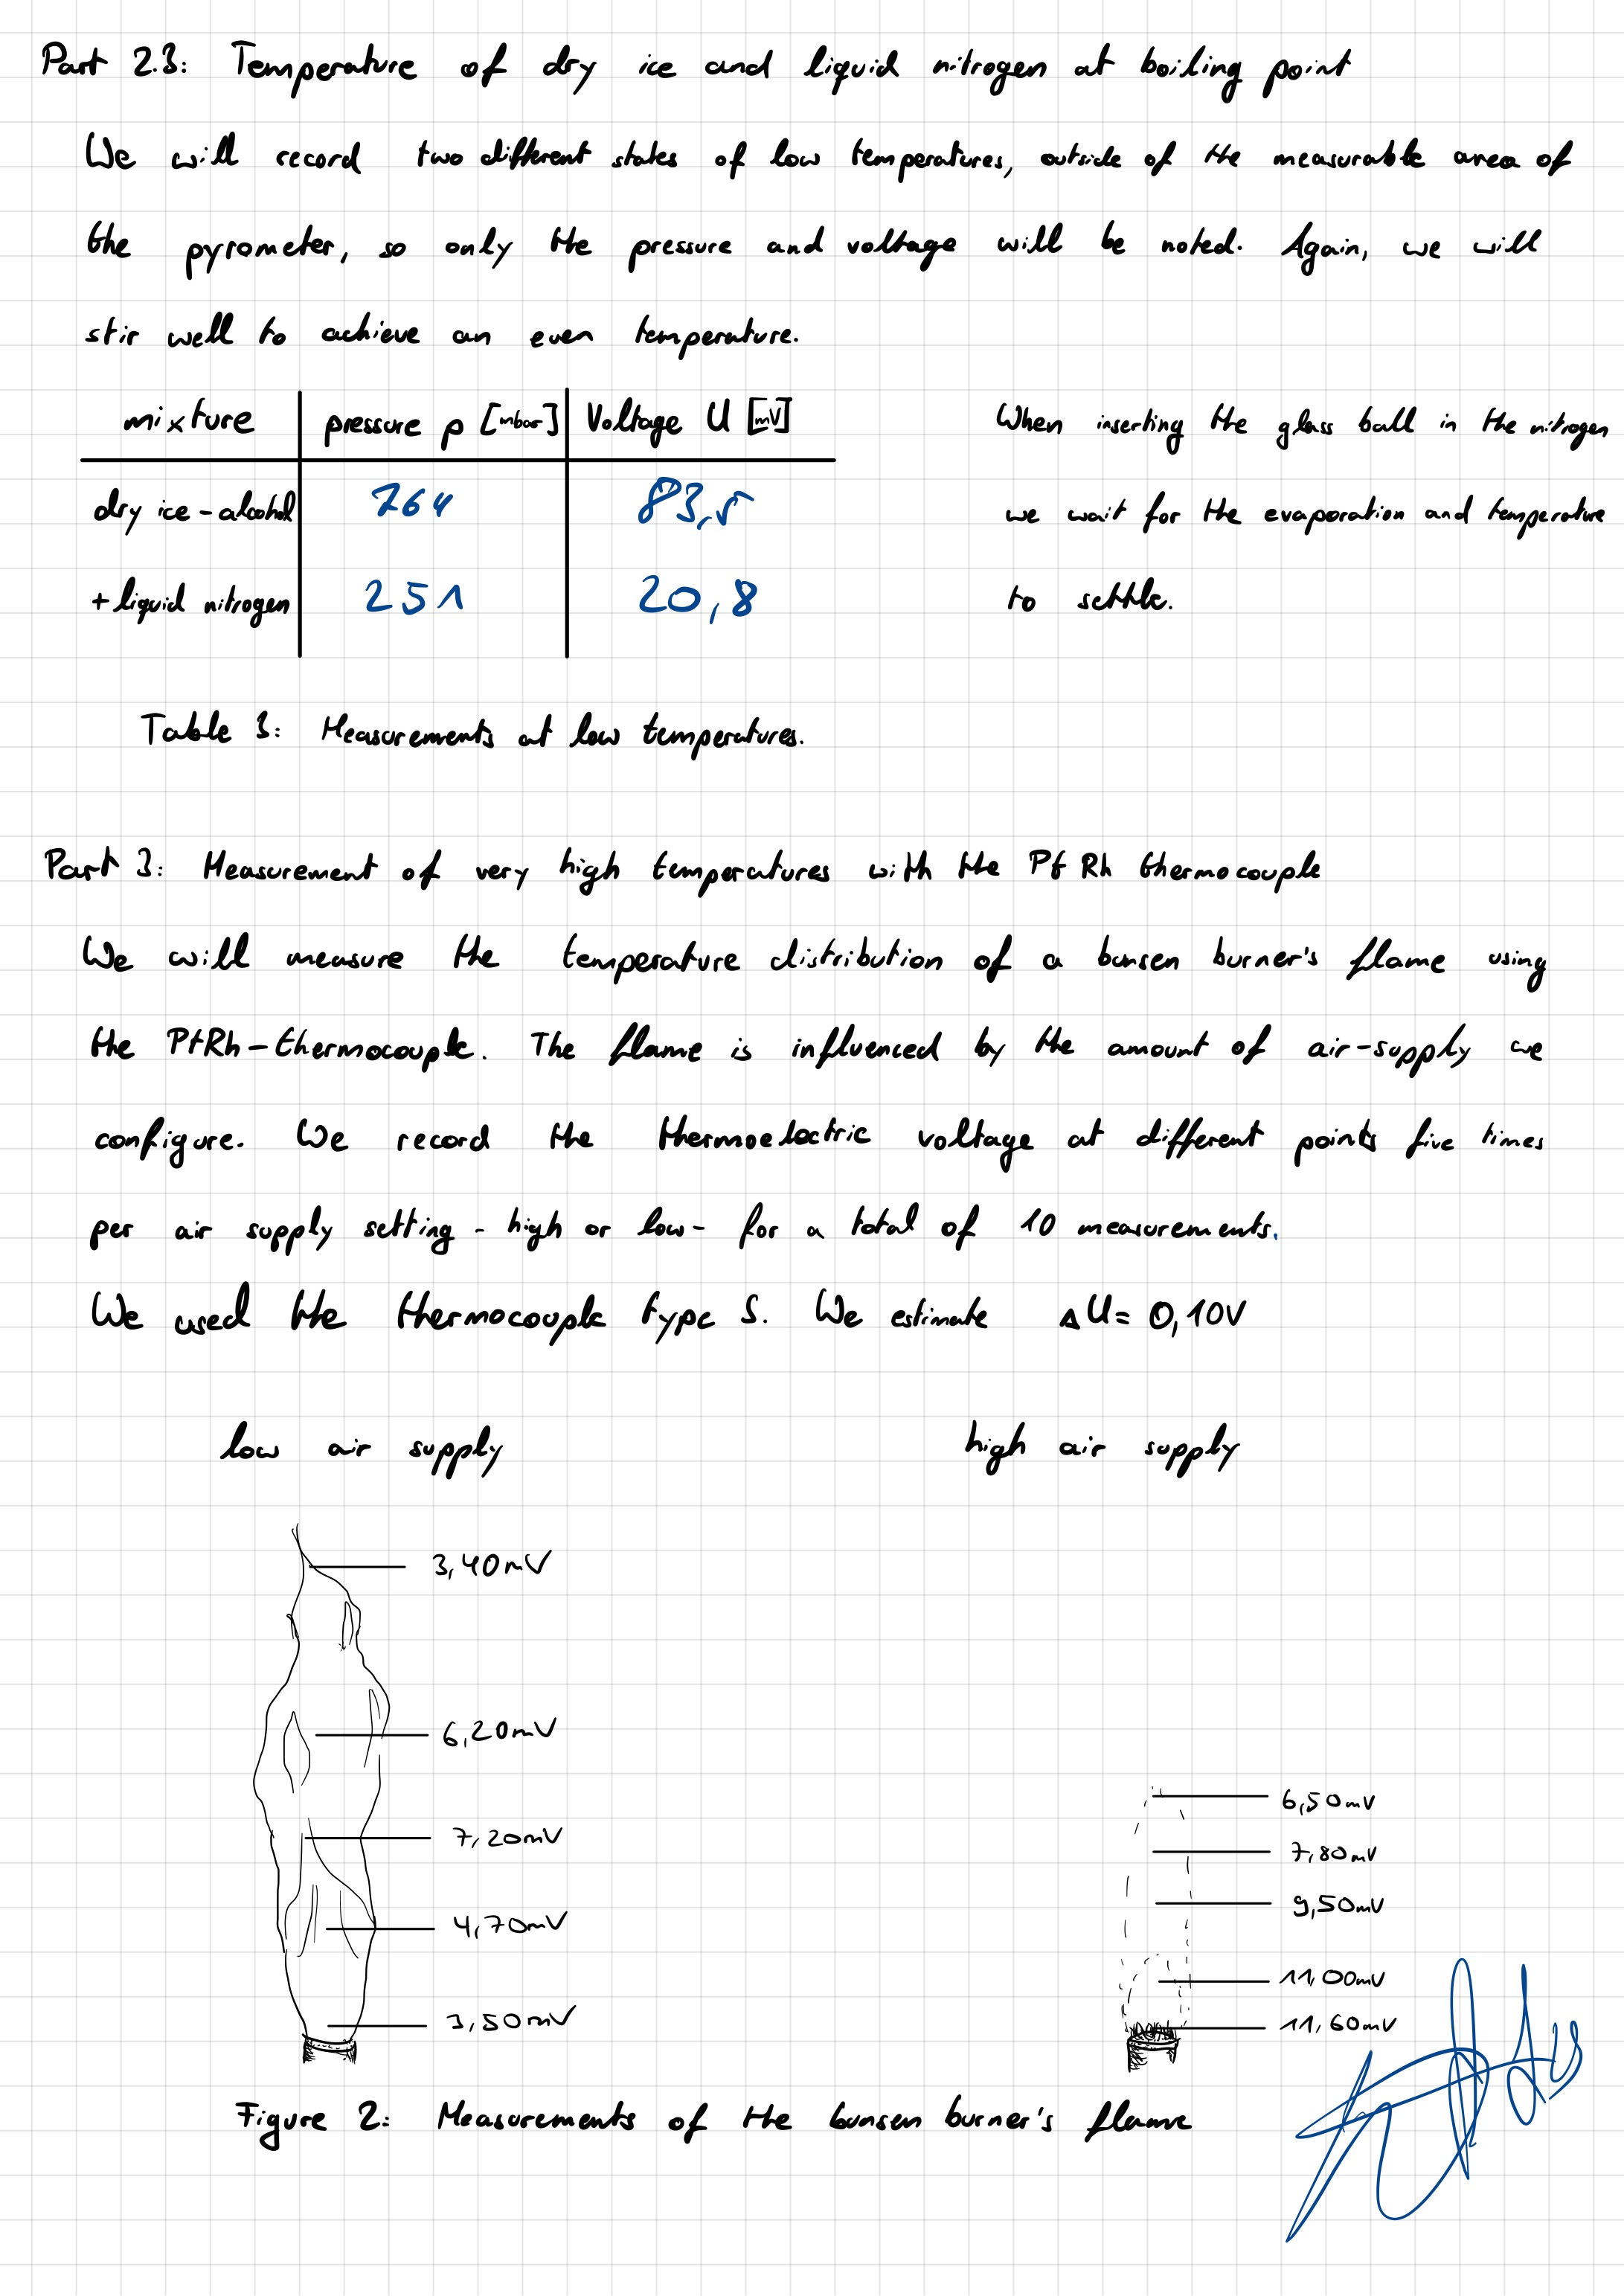 Part 2.3: Temperature of dry ice and liquid nitrogen at boiling point
We will record two different states of low temperatures, outside of the measurable area of
the pyrometer, so only the pressure and voltage will be noted. Again, we will
stir well to achieve an even temperature.
mixture pressure p [mbar] Voltage U [mV]
dry ice - alcohol 764 83,5
+ liquid nitrogen 251 20,8
When inserting the glass ball in the nitrogen
we wait for the evaporation and temperature
to settle.
Table 3: Measurements at low temperatures.
Part 3: Measurement of very high temperatures with the Pt Rh thermocouple
We will measure the temperature distribution of a bunsen burner's flame using
the PtRh-thermocouple. The flame is influenced by the amount of air-supply we
configure. We record the thermoelectric voltage at different points five times
per air supply setting - high or low - for a total of 10 measurements.
We used the thermocouple type S. We estimate ΔU = 0,10V
low air supply
3,40mV
6,20mV
7,20mV
4,70mV
3,50mV
high air supply
6,50mV
7,80mV
9,50mV
11,00mV
11,60mV
Figure 2: Measurements of the bunsen burner's flame